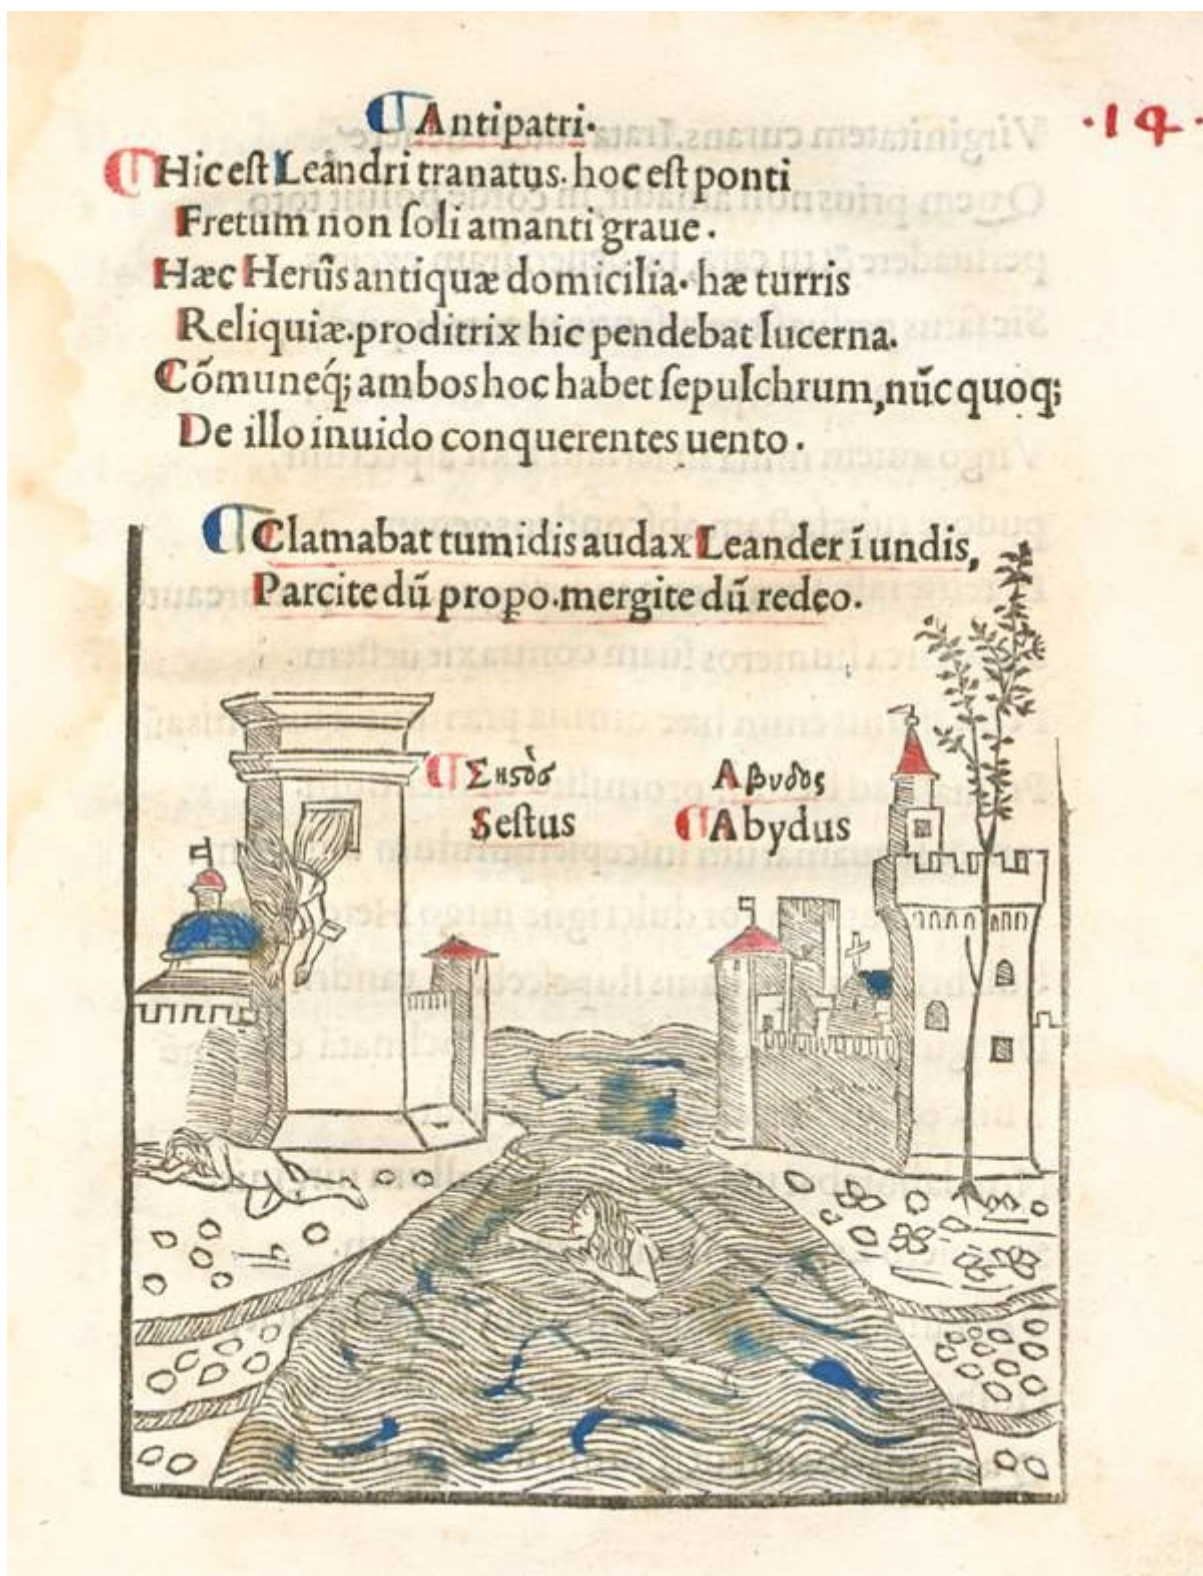 Antipatri.
·14·
Hic est Leandri tranatus. hoc est ponti
Fretum non soli amanti graue.
Hæc Herûs antiquæ domicilia. hæ turris
Reliquiæ. proditrix hic pendebat lucerna.
Cõmuneq́; ambos hoc habet sepulchrum, nũc quoq;
De illo inuido conquerentes uento.
Clamabat tumidis audax Leander ĩ undis,
Parcite dũ propo. mergite dũ redeo.
Σηστὸσ Αβυδος
Sestus Abydus